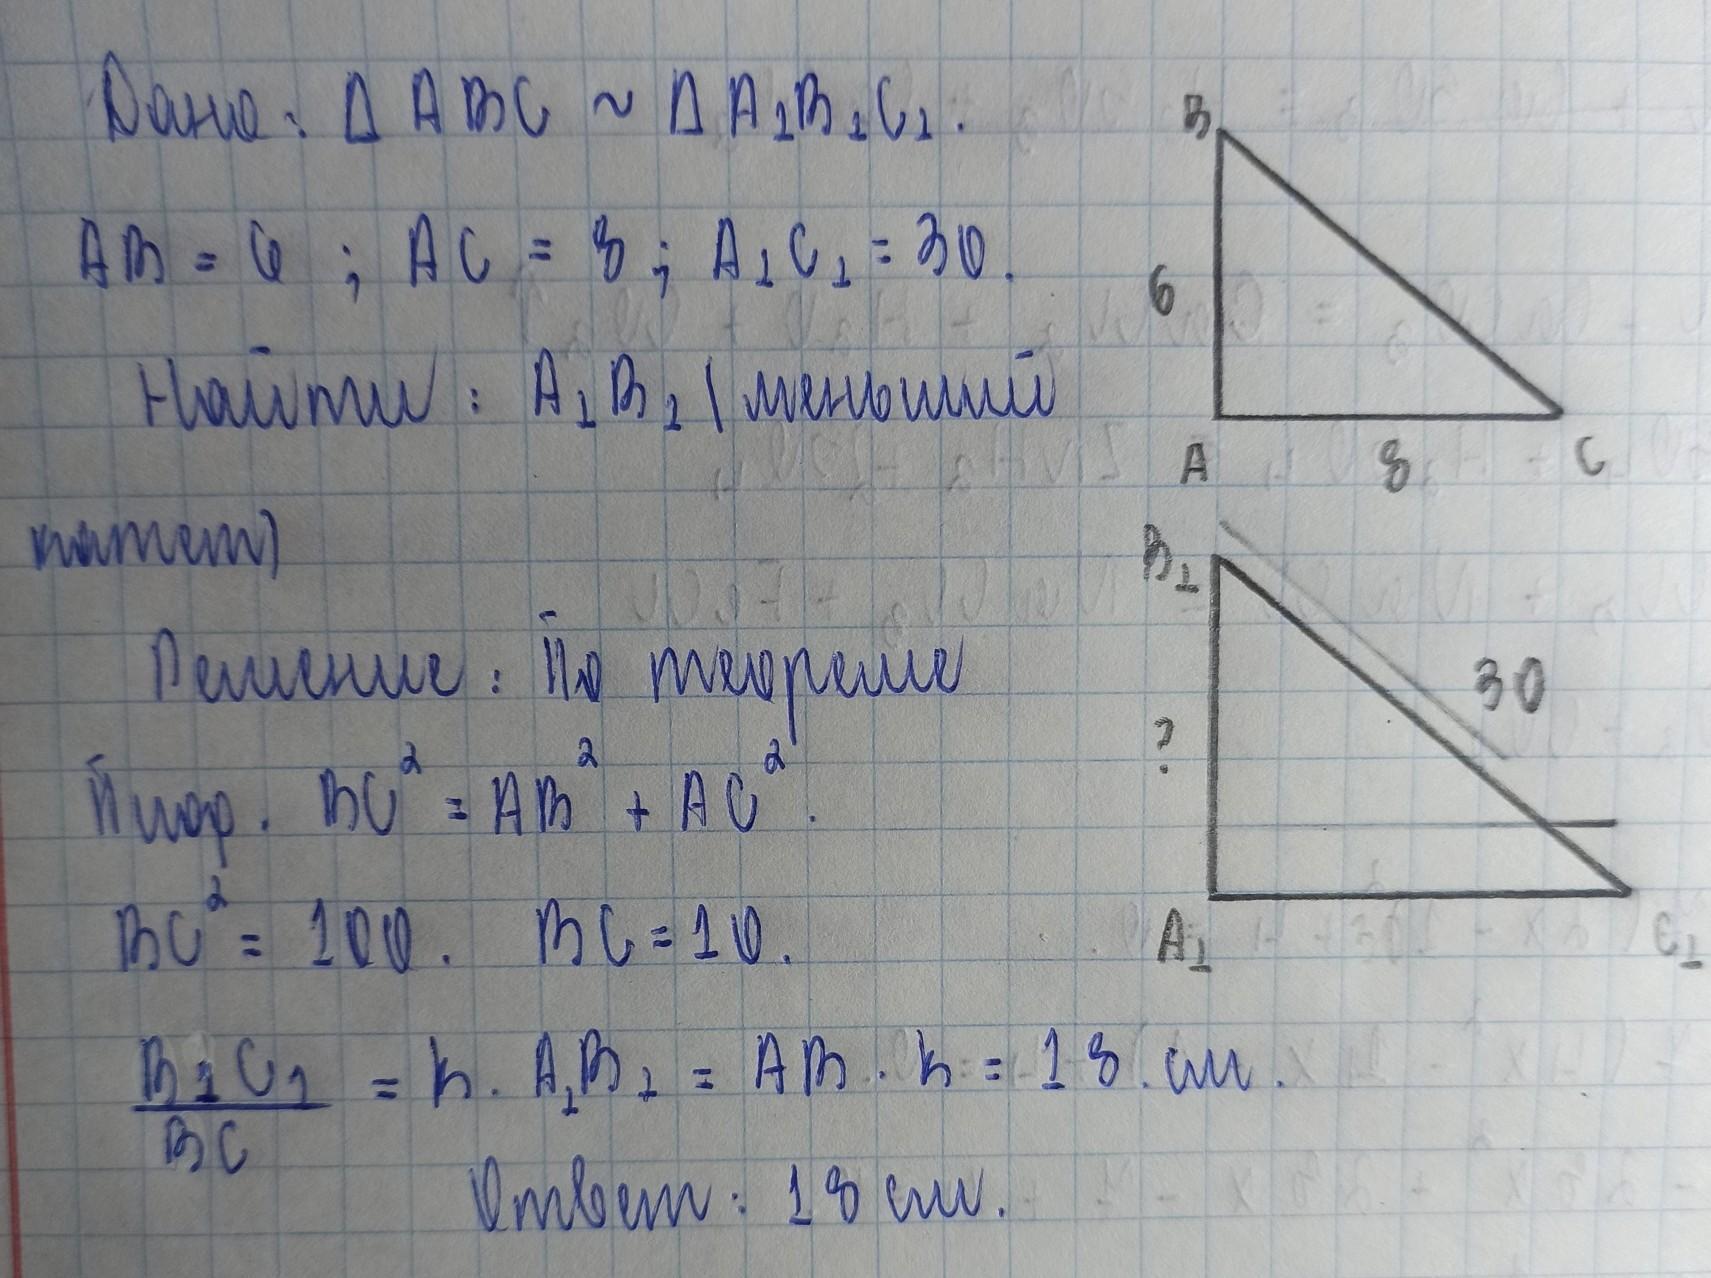 Дано: Δ ABC ~ Δ A₁B₁C₁.
AB = 6 ; AC = 8 ; A₁C₁ = 30.
Найти: A₁B₁ (меньший
катет)
Решение: По теореме
Пиф. BC² = AB² + AC².
BC² = 100. BC = 10.
B₁C₁/BC = k. A₁B₁ = AB · k = 18 см.
Ответ: 18 см.
B
6
A 8 C
B₁
30
?
A₁ C₁